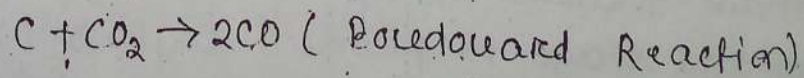 C + CO₂ → 2CO ( Bouedouard Reaction)